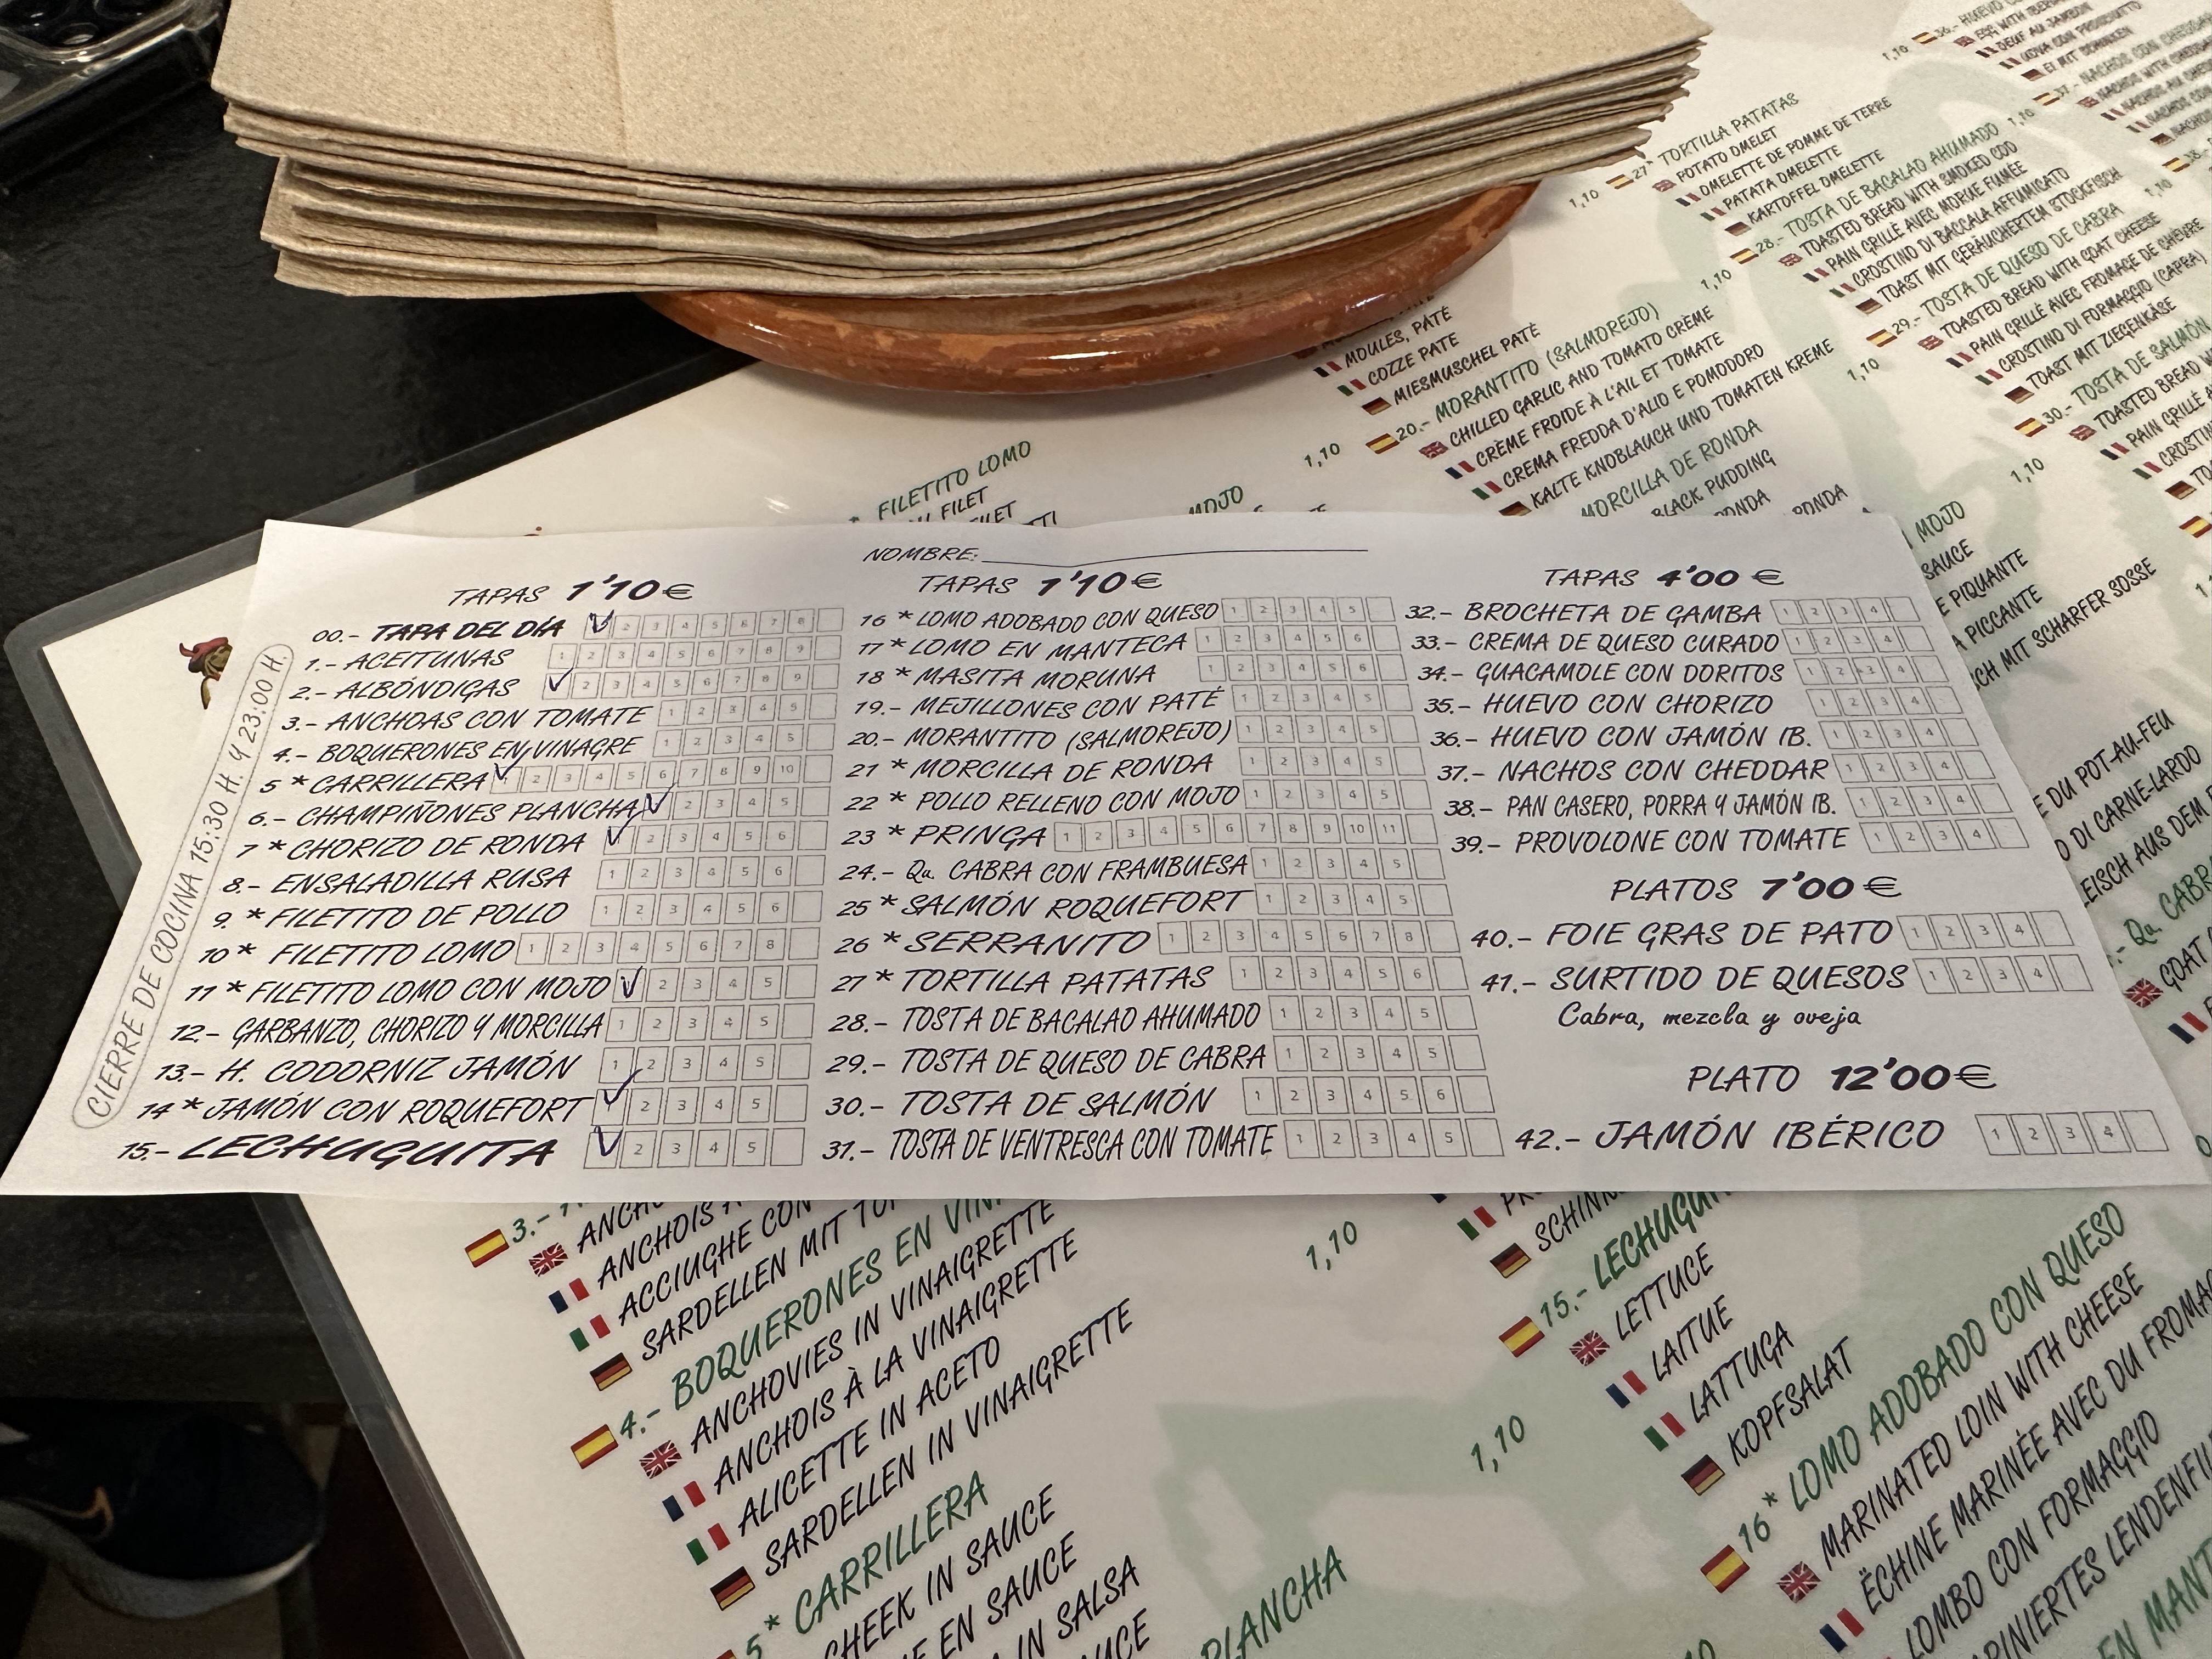 NOMBRE:
TAPAS 1'10€
00.- TAPA DEL DÍA 2 3 4 5 6 7 8
1.- ACEITUNAS 1 2 3 4 5 6 7 8 9
2.- ALBÓNDIGAS 2 3 4 5 6 7 8 9
3.- ANCHOAS CON TOMATE 1 2 3 4 5
4.- BOQUERONES EN VINAGRE 1 2 3 4 5
5 * CARRILLERA 2 3 4 5 6 7 8 9 10
6.- CHAMPIÑONES PLANCHA 2 3 4 5
7 * CHORIZO DE RONDA 2 3 4 5 6
8.- ENSALADILLA RUSA 1 2 3 4 5 6
9 * FILETITO DE POLLO 1 2 3 4 5 6
10 * FILETITO LOMO 1 2 3 4 5 6 7 8
11 * FILETITO LOMO CON MOJO 2 3 4 5
12.- GARBANZO, CHORIZO Y MORCILLA 1 2 3 4 5
13.- H. CODORNIZ JAMÓN 1 2 3 4 5
14 * JAMÓN CON ROQUEFORT 1 2 3 4 5
15.- LECHUGUITA 2 3 4 5
CIERRE DE COCINA 15:30 H. Y 23:00 H.
TAPAS 1'10€
16 * LOMO ADOBADO CON QUESO 1 2 3 4 5
17 * LOMO EN MANTECA 1 2 3 4 5 6
18 * MASITA MORUNA 1 2 3 4 5 6
19.- MEJILLONES CON PATÉ 1 2 3 4 5
20.- MORANTITO (SALMOREJO) 1 2 3 4 5
21 * MORCILLA DE RONDA 1 2 3 4 5
22 * POLLO RELLENO CON MOJO 1 2 3 4 5
23 * PRINGA 1 2 3 4 5 6 7 8 9 10 11
24.- Qu. CABRA CON FRAMBUESA 1 2 3 4 5
25 * SALMÓN ROQUEFORT 1 2 3 4 5
26 * SERRANITO 1 2 3 4 5 6 7 8
27 * TORTILLA PATATAS 1 2 3 4 5 6
28.- TOSTA DE BACALAO AHUMADO 1 2 3 4 5
29.- TOSTA DE QUESO DE CABRA 1 2 3 4 5
30.- TOSTA DE SALMÓN 1 2 3 4 5 6
31.- TOSTA DE VENTRESCA CON TOMATE 1 2 3 4 5
TAPAS 4'00 €
32.- BROCHETA DE GAMBA 1 2 3 4
33.- CREMA DE QUESO CURADO 1 2 3 4
34.- GUACAMOLE CON DORITOS 1 2 3 4
35.- HUEVO CON CHORIZO 1 2 3 4
36.- HUEVO CON JAMÓN IB. 1 2 3 4
37.- NACHOS CON CHEDDAR 1 2 3 4
38.- PAN CASERO, PORRA Y JAMÓN IB. 1 2 3 4
39.- PROVOLONE CON TOMATE 1 2 3 4
PLATOS 7'00 €
40.- FOIE GRAS DE PATO 1 2 3 4
41.- SURTIDO DE QUESOS 1 2 3 4
Cabra, mezcla y oveja
PLATO 12'00€
42.- JAMÓN IBÉRICO 1 2 3 4
FILETITO LOMO
FILET
MOJO
MOULES, PÁTÉ
COZZE PATE
MIESMUSCHEL PATÉ
1,10
20.- MORANTITO (SALMOREJO)
CHILLED GARLIC AND TOMATO CRÈME
CRÈME FROIDE À L'AIL ET TOMATE
CREMA FREDDA D'ALIO E POMODORO
KALTE KNOBLAUCH UND TOMATEN KREME
MORCILLA DE RONDA
BLACK PUDDING
RONDA
RONDA
1,10
27* TORTILLA PATATAS
POTATO OMELET
OMELETTE DE POMME DE TERRE
PATATA OMELETTE
KARTOFFEL OMELETTE
1,10
28.- TOSTA DE BACALAO AHUMADO
TOASTED BREAD WITH SMOKED COD
PAIN GRILLÉ AVEC MORUE FUMÉE
CROSTINO DI BACCALA AFFUMICATO
TOAST MIT GERÄUCHERTEM STOCKFISCH
1,10
29.- TOSTA DE QUESO DE CABRA
TOASTED BREAD WITH GOAT CHEESE
PAIN GRILLÉ AVEC FROMAGE DE CHÈVRE
CROSTINO DI FORMAGGIO (CAPRA)
TOAST MIT ZIEGENKÄSE
1,10
30.- TOSTA DE SALMÓN
TOASTED BREAD
PAIN GRILLÉ
1,10
MOJO
SAUCE
PIQUANTE
PICCANTE
MIT SCHARFER SOSSE
DU POT-AU-FEU
DI CARNE-LARDO
AUS DEM
Qu. CABRA
GOAT
3.-
SARDELLEN MIT
4.- BOQUERONES EN
ANCHOVIES IN VINAIGRETTE
ANCHOIS À LA VINAIGRETTE
ALICETTE IN ACETO
SARDELLEN IN VINAIGRETTE
5* CARRILLERA
CHEEK IN SAUCE
EN SAUCE
IN SALSA
PLANCHA
1,10
15.-
LETTUCE
LAITUE
LATTUGA
KOPFSALAT
1,10
16* LOMO ADOBADO CON QUESO
MARINATED LOIN WITH CHEESE
ÉCHINE MARINÉE AVEC DU
LOMBO CON FORMAGGIO